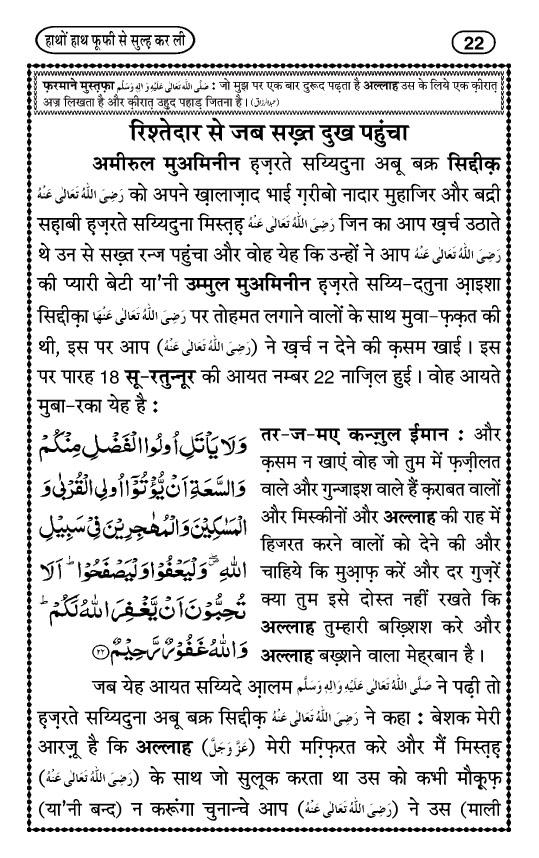 हाथों हाथ फूफी से सुल्ह़ कर ली
22
फ़रमाने मुस्त़फ़ा صَلَّى اللهُ تَعَالٰى عَلَيْهِ وَاٰلِهٖ وَسَلَّم : जो मुझ पर एक बार दुरूद पढ़ता है अल्लाह उस के लिये एक क़ीरात़
अज्र लिखता है और क़ीरात़ उहुद पहाड़ जितना है । (عبدالرزاق)
रिश्तेदार से जब सख़्त दुख पहुंचा
अमीरुल मुअमिनीन ह़ज़रते सय्यिदुना अबू बक्र सिद्दीक़
رَضِىَ اللهُ تَعَالٰى عَنْهُ को अपने ख़ालाज़ाद भाई ग़रीबो नादार मुहाजिर और बद्री
सह़ाबी ह़ज़रते सय्यिदुना मिस्त़ह़ رَضِىَ اللهُ تَعَالٰى عَنْهُ जिन का आप ख़र्च उठाते
थे उन से सख़्त रन्ज पहुंचा और वोह येह कि उन्हों ने आप رَضِىَ اللهُ تَعَالٰى عَنْهُ
की प्यारी बेटी या'नी उम्मुल मुअमिनीन ह़ज़रते सय्यि-दतुना आ़इशा
सिद्दीक़ा رَضِىَ اللهُ تَعَالٰى عَنْهَا पर तोहमत लगाने वालों के साथ मुवा-फ़क़त की
थी, इस पर आप (رَضِىَ اللهُ تَعَالٰى عَنْهُ) ने ख़र्च न देने की क़सम खाई । इस
पर पारह 18 सू-रतुन्नूर की आयत नम्बर 22 नाज़िल हुई । वोह आयते
मुबा-रका येह है :
وَلَا يَاْتَلِ اُولُوا الْفَضْلِ مِنْكُمْ
وَالسَّعَةِ اَنْ يُّؤْتُوْۤا اُولِى الْقُرْبٰى وَ
الْمَسٰكِيْنَ وَالْمُهٰجِرِيْنَ فِىْ سَبِيْلِ
اللهِ ۖ وَلْيَعْفُوْا وَلْيَصْفَحُوْا ؕ اَلَا
تُحِبُّوْنَ اَنْ يَّغْفِرَ اللهُ لَكُمْ ؕ
وَاللهُ غَفُوْرٌ رَّحِيْمٌ ﴿۲۲﴾
तर-ज-मए कन्ज़ुल ईमान : और
क़सम न खाएं वोह जो तुम में फ़ज़ीलत
वाले और गुन्जाइश वाले हैं क़राबत वालों
और मिस्कीनों और अल्लाह की राह में
हिजरत करने वालों को देने की और
चाहिये कि मुआ़फ़ करें और दर गुज़रें
क्या तुम इसे दोस्त नहीं रखते कि
अल्लाह तुम्हारी बख़्शिश करे और
अल्लाह बख़्शने वाला मेहरबान है ।
जब येह आयत सय्यिदे आ़लम صَلَّى اللهُ تَعَالٰى عَلَيْهِ وَاٰلِهٖ وَسَلَّم ने पढ़ी तो
ह़ज़रते सय्यिदुना अबू बक्र सिद्दीक़ رَضِىَ اللهُ تَعَالٰى عَنْهُ ने कहा : बेशक मेरी
आरज़ू है कि अल्लाह (عَزَّوَجَلَّ) मेरी मग़्फ़िरत करे और मैं मिस्त़ह़
(رَضِىَ اللهُ تَعَالٰى عَنْهُ) के साथ जो सुलूक करता था उस को कभी मौक़ूफ़
(या'नी बन्द) न करूंगा चुनान्चे आप (رَضِىَ اللهُ تَعَالٰى عَنْهُ) ने उस (माली